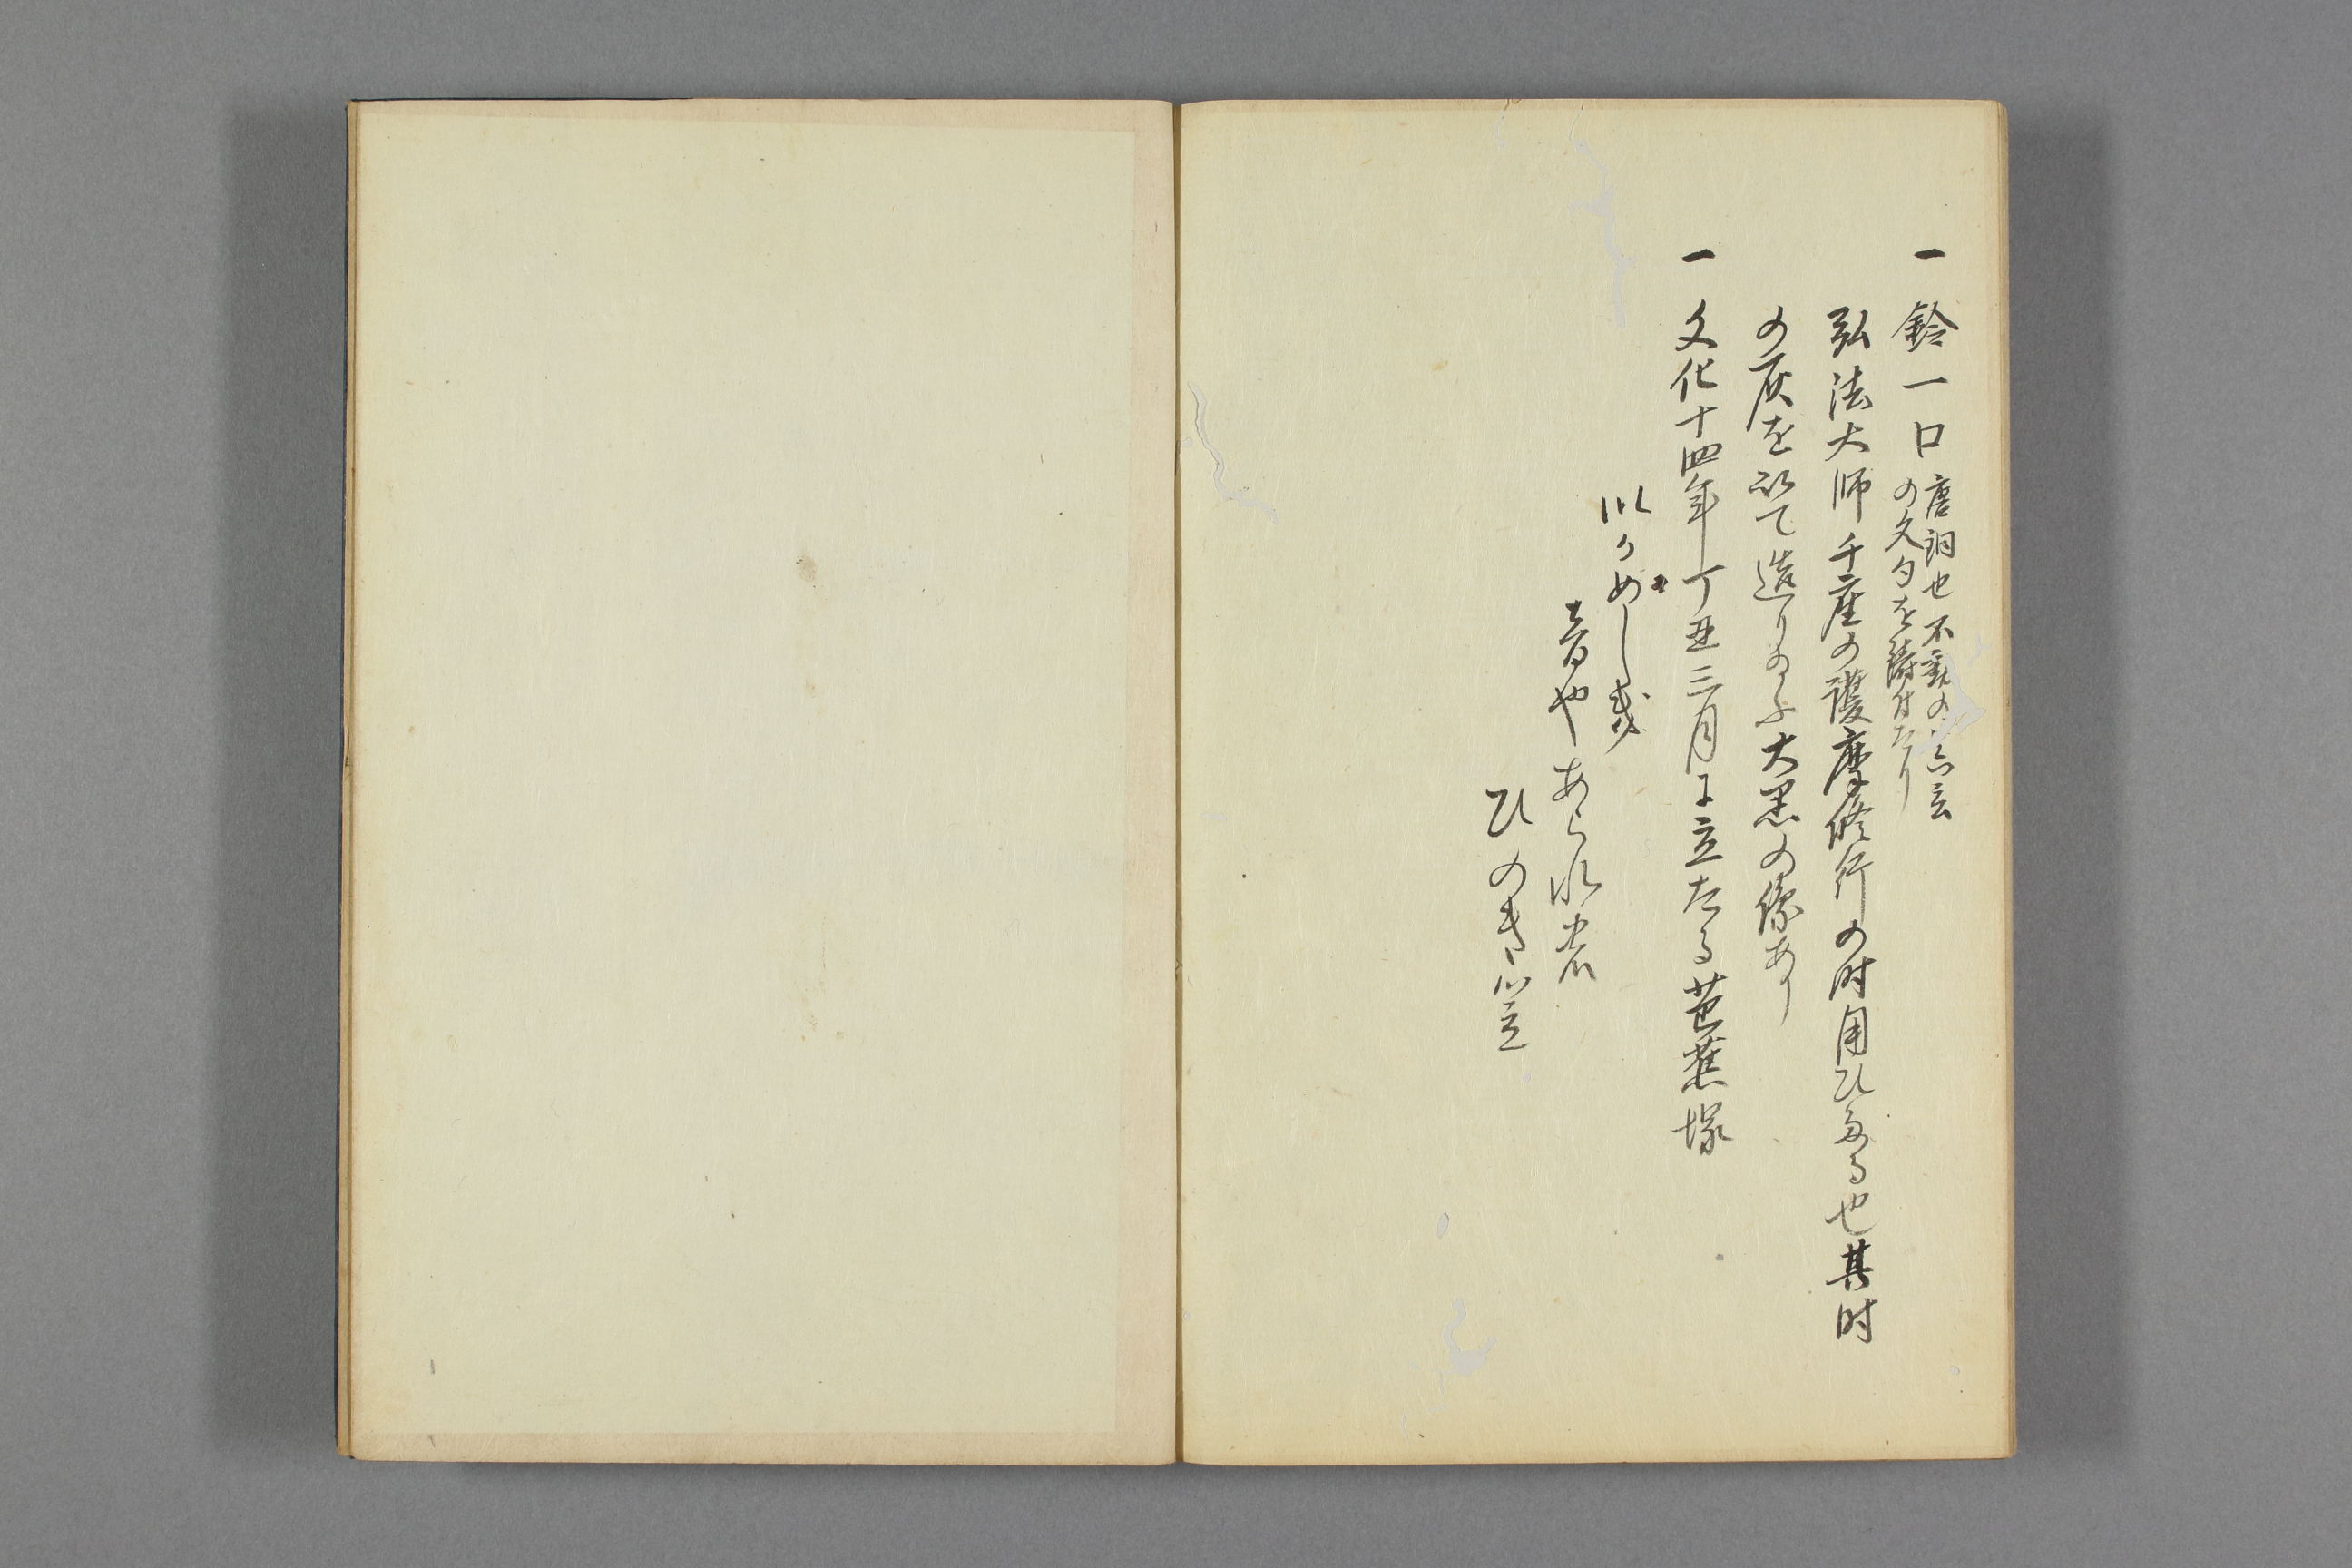 一 鈴一口
唐銅也不動の真言
の文句を鋳付たり
弘法大師千座の護摩修行の時用ひたる也其時
の灰を以て造り給ふ大黒の像あり
一 文化十四年丁丑三月に立たる芭蕉塚
いかめしき
音やあられの
ひのき笠